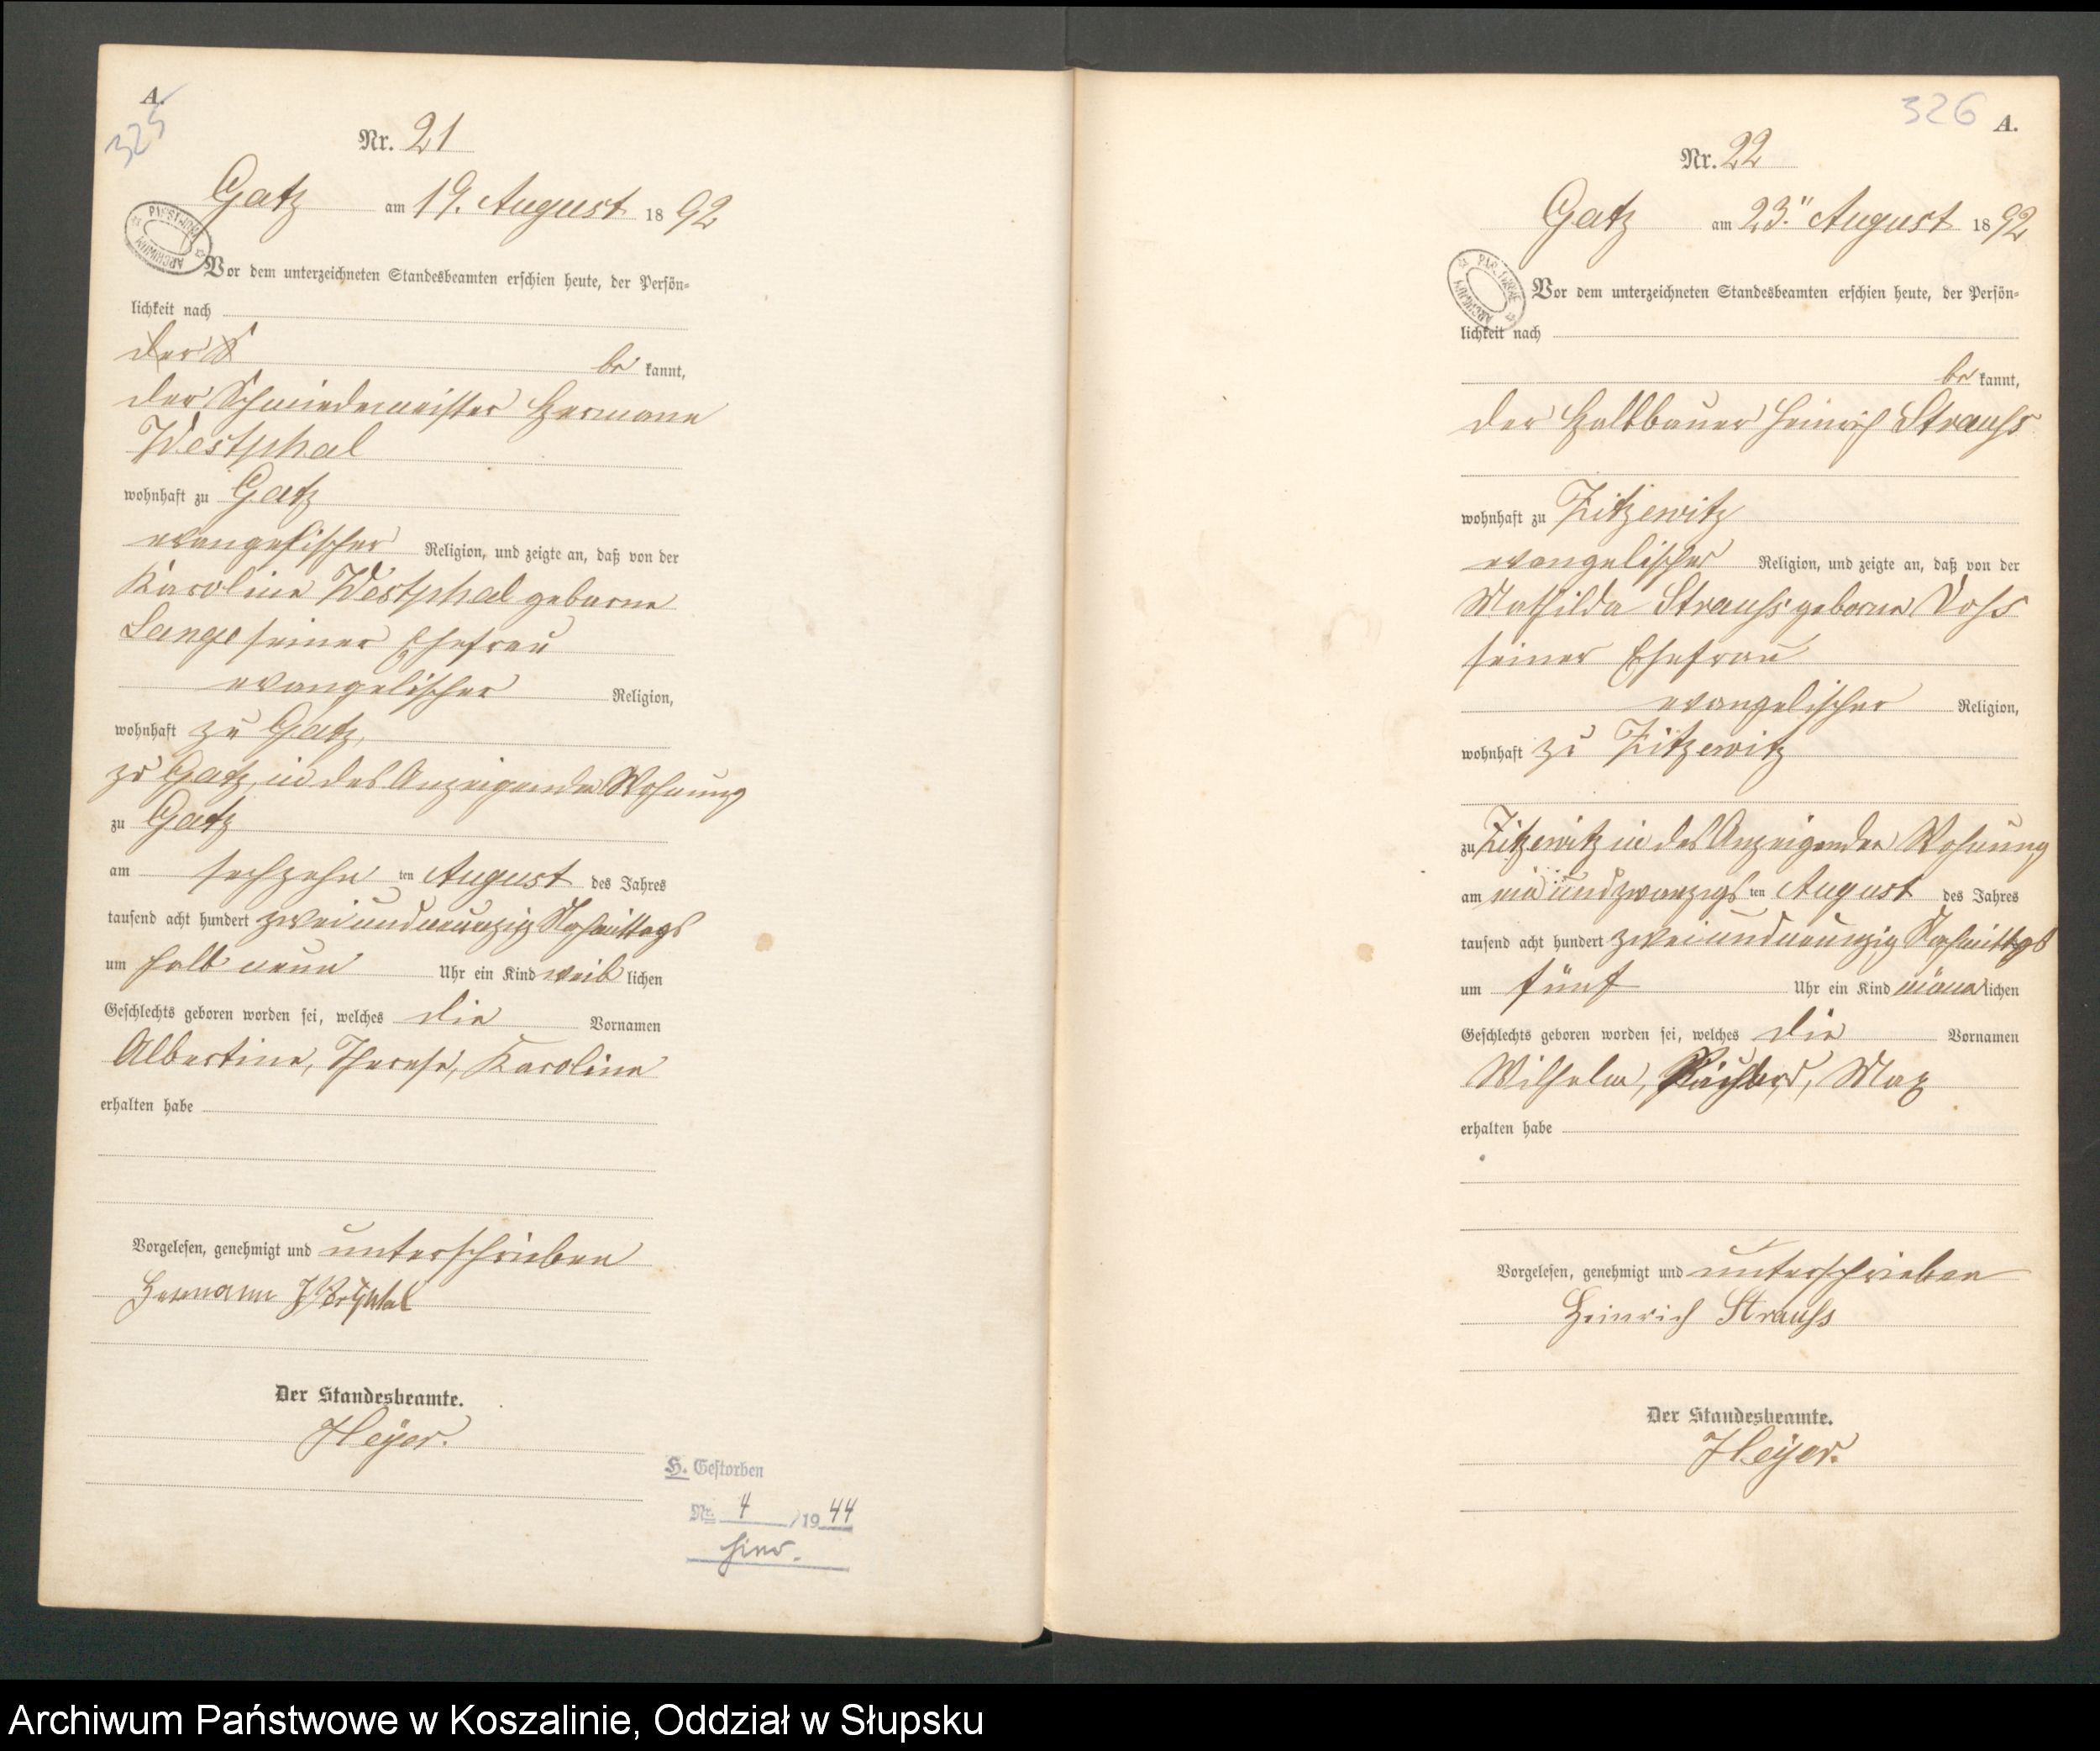 A.
325
Nr. 21
Gatz am 19. August 1892
Vor dem unterzeichneten Standesbeamten erschien heute, der Persön-
lichkeit nach
der S
be kannt,
der Schmiedemeister Hermann
Westphal
wohnhaft zu Gatz
evangelischer Religion, und zeigte an, daß von der
Karoline Westphal geborne
Lange seiner Ehefrau
evangelischer Religion,
wohnhaft zu Gatz,
zu Gatz, in des Anzeigenden Wohnung
zu Gatz
am sechzehn ten August des Jahres
tausend acht hundert zweiundneunzig Nachmittags
um halb neun Uhr ein Kind weib lichen
Geschlechts geboren worden sei, welches die Vornamen
Albertine, Therese, Karoline
erhalten habe
Vorgelesen, genehmigt und unterschrieben
Hermann Westphal
Der Standesbeamte.
Heyer.
H. Gestorben
Nr. 4 /1944
hier.
326
A.
Nr. 22
Gatz am 23. August 1892
Vor dem unterzeichneten Standesbeamten erschien heute, der Persön-
lichkeit nach
be kannt,
der Halbbauer Heinrich Strauss
wohnhaft zu Zitzewitz
evangelischer Religion, und zeigte an, daß von der
Mathilda Strauss geborne Voss
seiner Ehefrau
evangelischer Religion,
wohnhaft zu Zitzewitz
zu Zitzewitz in des Anzeigenden Wohnung
am einundzwanzigs ten August des Jahres
tausend acht hundert zweiundneunzig Nachmittgs
um fünf Uhr ein Kind männ lichen
Geschlechts geboren worden sei, welches die Vornamen
Wilhelm, Richard, Max
erhalten habe
Vorgelesen, genehmigt und unterschrieben
Heinrich Strauss
Der Standesbeamte.
Heyer.
Archiwum Państwowe w Koszalinie, Oddział w Słupsku